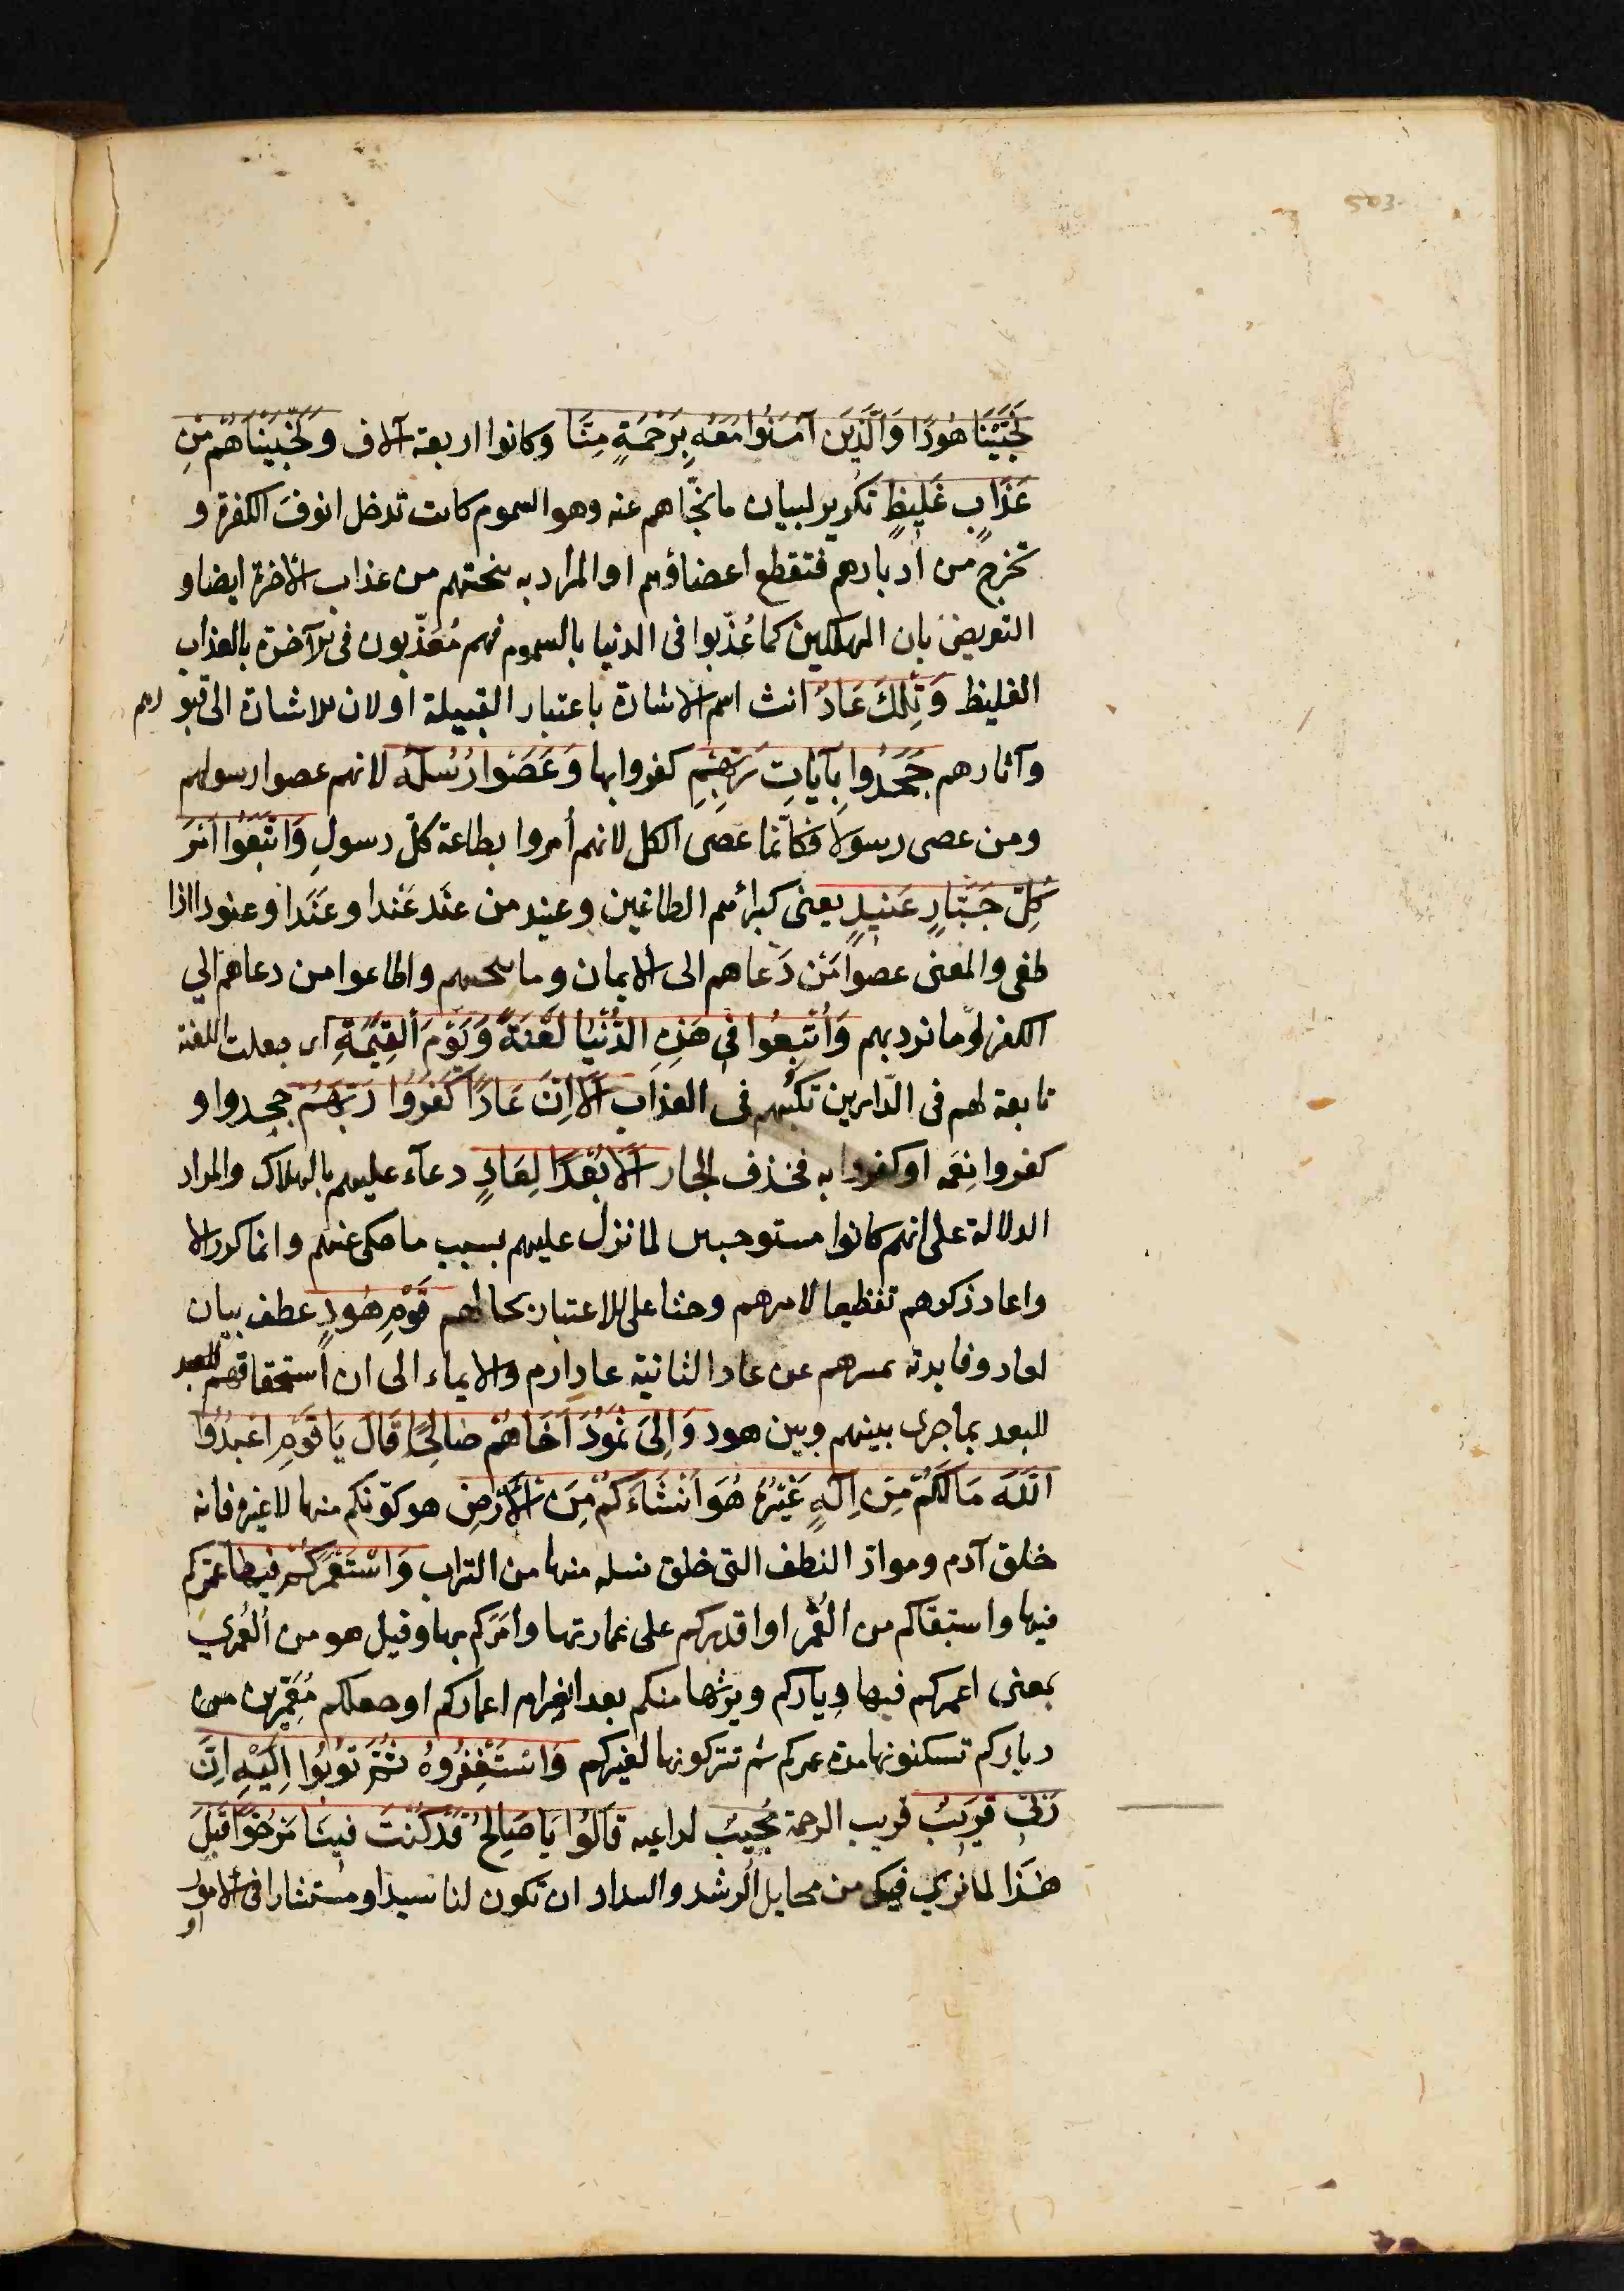 503
نَجَّيْنَا هُودًا وَالَّذِينَ آمَنُوا مَعَهُ بِرَحْمَةٍ مِنَّا وكانوا اربعة آلاف وَنَجَّيْنَاهُمْ مِنْ
عَذَابٍ غَلِيظٍ تكرير لبيان ما نجّاهم عنه وهو السموم كانت تدخل انوفَ الكفرة و
تخرج من أدبارهم فتقطع اعضاؤهم او المراد به تنجيتهم من عذاب الآخرة ايضا و
التعريض بان المهلكين كما عُذّبوا فى الدنيا بالسموم فهم مُعَذّبون فى الآخرة بالعذاب
الغليظ وَتِلْكَ عَادٌ انث اسم الاشارة باعتبار القبيلة او لان الاشارة الى قبورهم
وآثارهم جَحَدُوا بِآيَاتِ رَبِّهِمْ كفروا بها وَعَصَوْا رُسُلَهُ لانهم عصوا رسولهم
ومن عصى رسولا فكأنّما عصى الكل لانهم أُمروا بطاعة كلّ رسولٍ وَاتَّبَعُوا أَمْرَ
كُلِّ جَبَّارٍ عَنِيدٍ يعنى كبرائهم الطاغين وعنيد من عنَد عَنْدا وعَنَدا وعنودا اذا
طغى والمعنى عصوا مَن دَعاهم الى الايمان وما ينجيهم واطاعوا من دعاهم الي
الكفر وما يرديهم وَأُتْبِعُوا فِي هَذِهِ الدُّنْيَا لَعْنَةً وَيَوْمَ الْقِيَمَةِ اى جعلت اللعنة
تابعة لهم فى الدّارين تكبّهم فى العذاب أَلَا إِنَّ عَادًا كَفَرُوا رَبَّهُمْ جحدوا و
كفروا نِعَمه او كفروا به فحذف الجار أَلَا بُعْدًا لِعَادٍ دعآء عليهم بالهلاك والمراد
الدلالة على انهم كانوا مستوجبين لما نزل عليهم بسبب ما حكى عنهم وانما كرر الا
واعاد ذكرهم تفظيعا لامرهم وحثا على الاعتبار بحالهم قَوْمِ هُودٍ عطف بيان
لعاد وفايدته تمييزهم عن عاد الثانية عاد ارم والايماء الى ان استحقاقهم للبعد
للبعد بما جرى بينهم وبين هود وَإِلَى ثَمُودَ أَخَاهُمْ صَالِحًا قَالَ يَا قَوْمِ اعْبُدُوا
اللَّهَ مَا لَكُمْ مِنْ إِلَهٍ غَيْرُهُ هُوَ أَنْشَأَكُمْ مِنَ الْأَرْضِ هو كوّنكم منها لا غيره فانه
خلق آدم وموادّ النطف التى خلق نسله منها من التراب وَاسْتَعْمَرَكُمْ فِيهَا عمّركم
فيها واستبقاكم من العُمْر او اقدركم على عمارتها وامَرَكم بها وقيل هو من العُمْري
بمعنى اعمركم فيها دِياركم ويرثها منكم بعد انصرام اعماركم او جعلكم مُعَمِّرين من
دياركم تسكنونها مدة عمركم ثم تتركونها لغيركم وَاسْتَغْفِرُوهُ ثُمَّ تُوبُوا إِلَيْهِ إِنَّ
رَبِّي قَرِيبٌ قريب الرحمة مُجِيبٌ لداعيه قَالُوا يَا صَالِحُ قَدْ كُنْتَ فِينَا مَرْجُوًّا قَبْلَ
هَذَا لما نري فيك من مخايل الرشد والسداد ان تكون لنا سيدا ومستشارا فى الامور
او